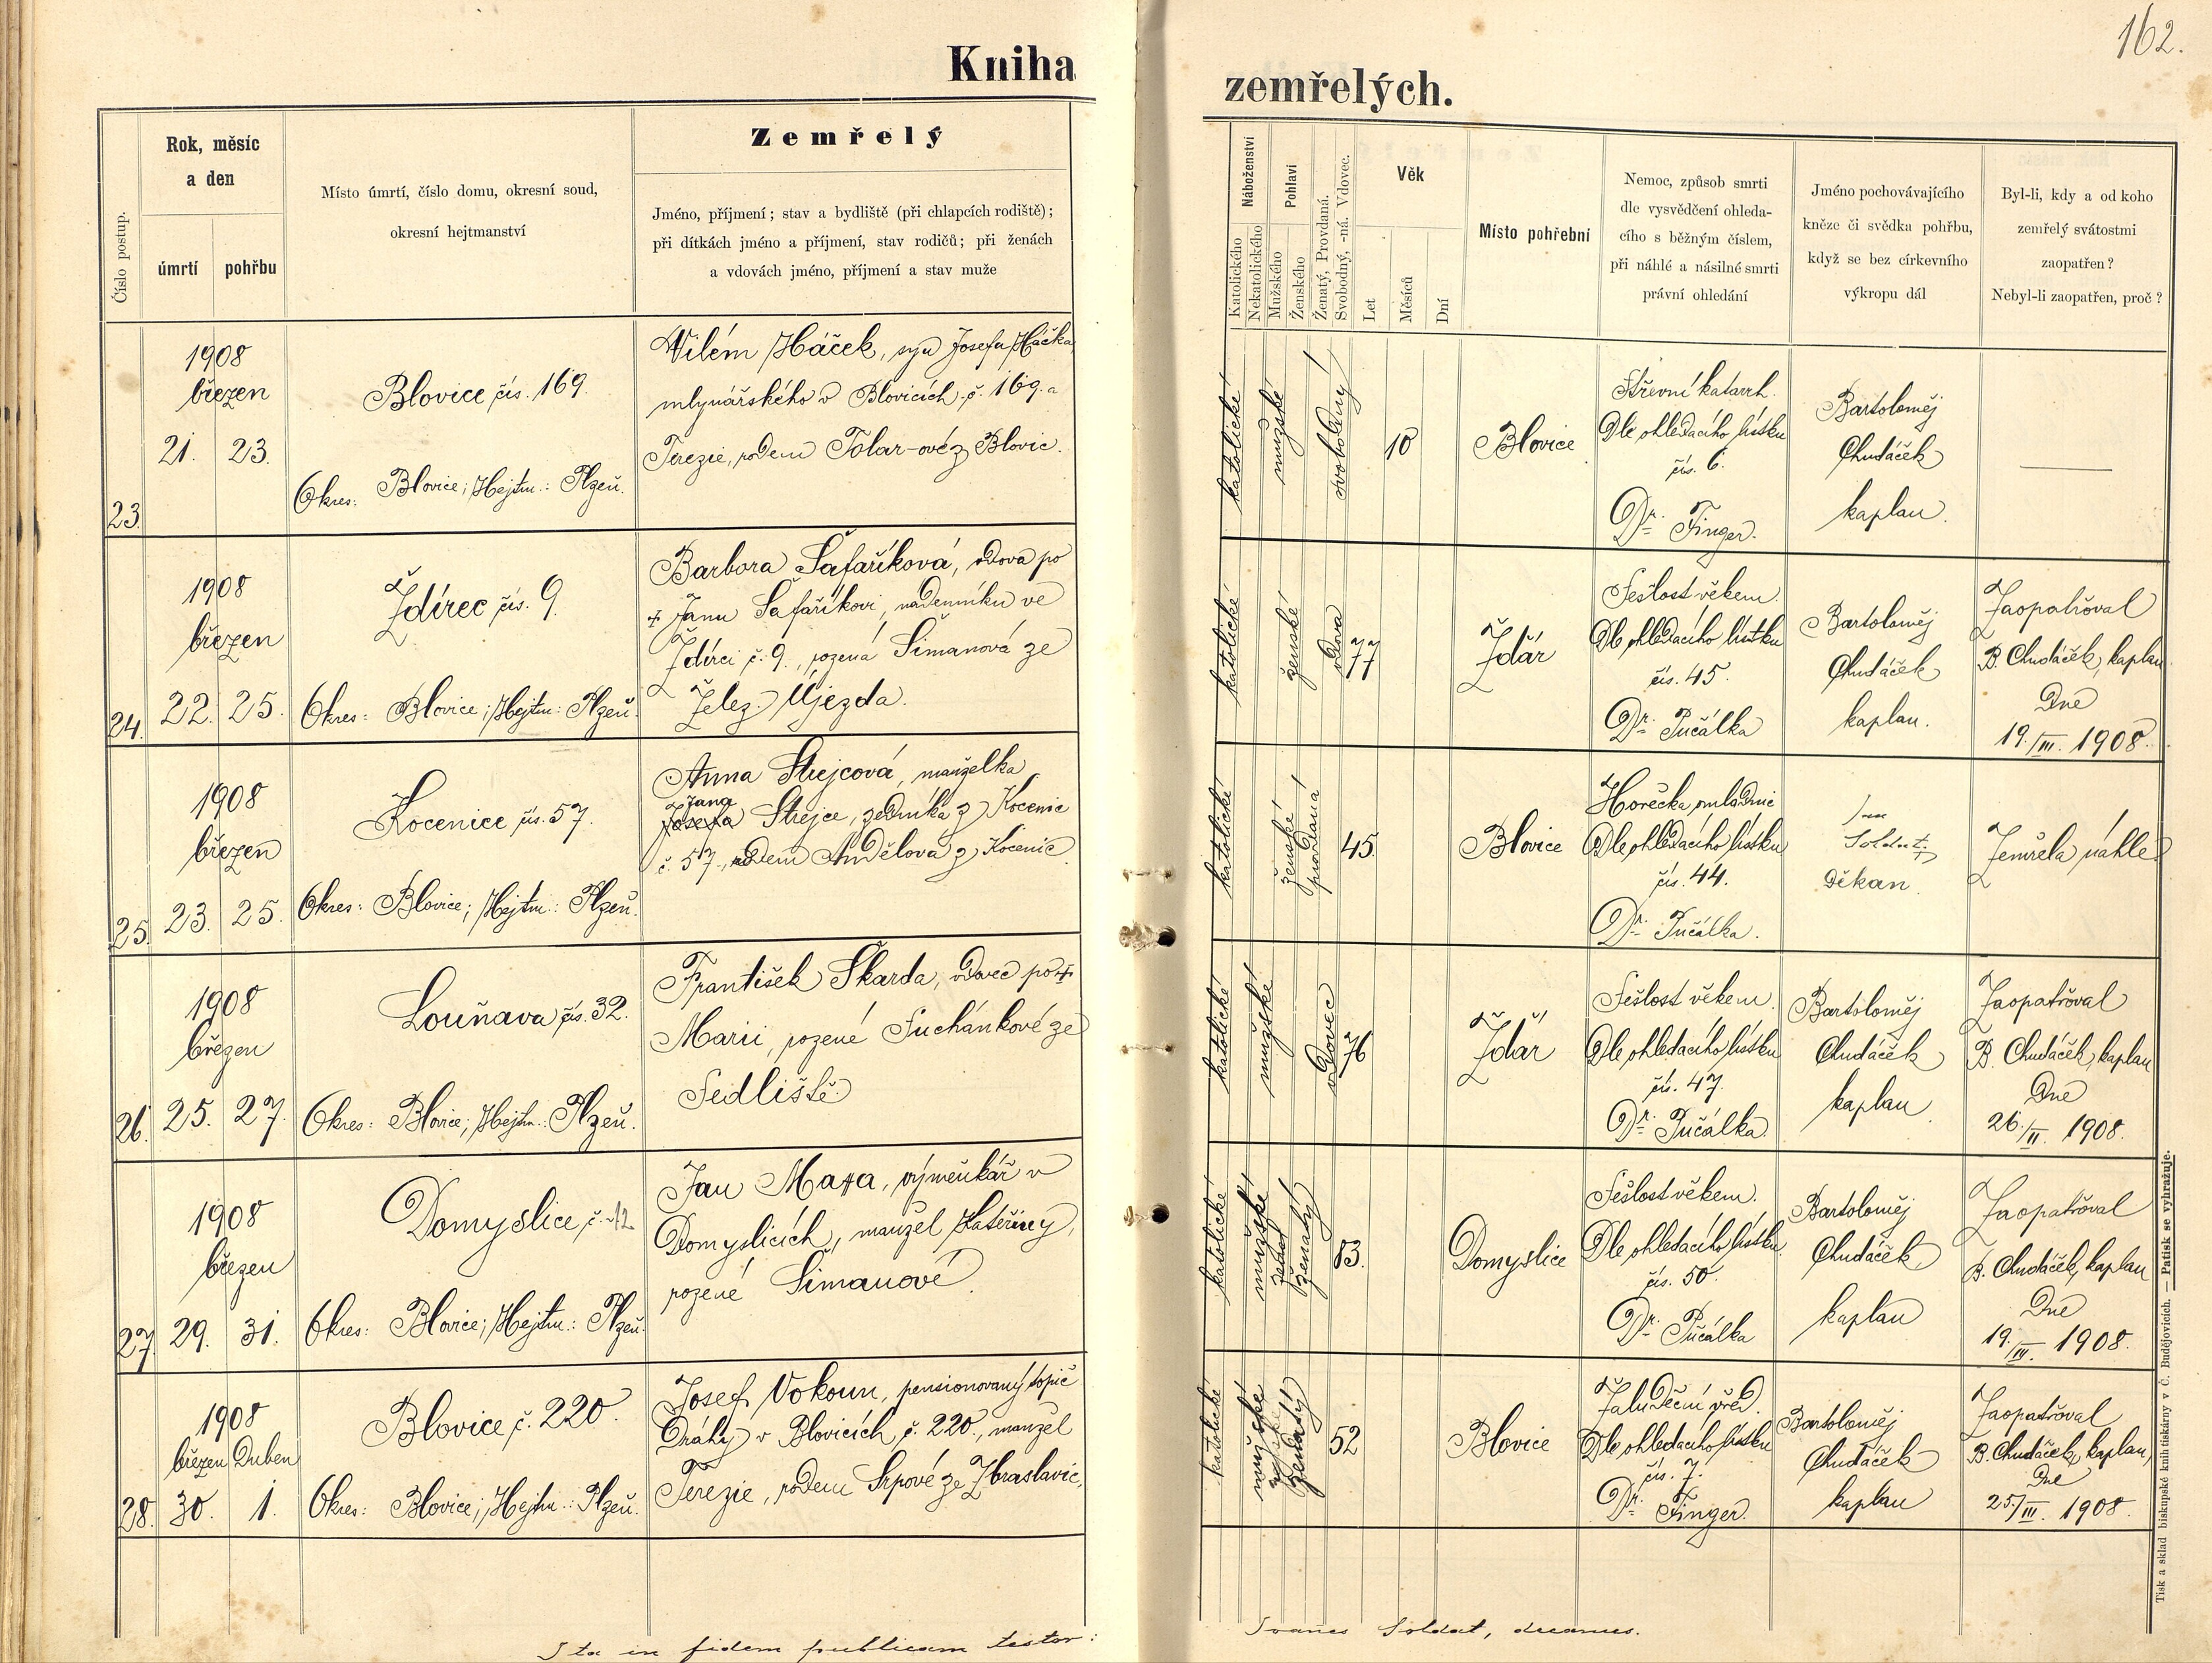 162.
Kniha
zemřelých.
Číslo postup.
Rok, měsíc
a den
úmrtí
pohřbu
Místo úmrtí, číslo domu, okresní soud,
okresní hejtmanství
Zemřelý
Jméno, příjmení; stav a bydliště (při chlapcích rodiště);
při dítkách jméno a příjmení, stav rodičů; při ženách
a vdovách jméno, příjmení a stav muže
Náboženství
Katolického
Nekatolického
Pohlaví
Mužského
Ženského
Ženatý, Provdaná.
Svobodný, -ná. Vdovec.
Věk
Let
Měsíců
Dní
Místo pohřební
Nemoc, způsob smrti
dle vysvědčení ohleda-
cího s běžným číslem,
při náhlé a násilné smrti
právní ohledání
Jméno pochovávajícího
kněze či svědka pohřbu,
když se bez církevního
výkropu dál
Byl-li, kdy a od koho
zemřelý svátostmi
zaopatřen?
Nebyl-li zaopatřen, proč?
23.
1908
březen
21. 23.
Blovice čís. 169.
Okres: Blovice; Hejtm.: Plzeň.
Vilém Háček, syn Josefa Háčka,
mlynářského v Blovicích č. 169. a
Terezie, rodem Tolar-ové z Blovic.
katolické
mužské
svobodný
10
Blovice
Střevní katarrh.
Dle ohledacího lístku
čís. 6.
Dr. Finger.
Bartoloměj
Chudáček
kaplan.
24.
1908
březen
22. 25.
Ždírec čís. 9.
Okres: Blovice; Hejtm: Plzeň.
Barbora Šafaříková, vdova po
† Janu Šafaříkovi, nádenníku ve
Ždírci č. 9., rozená Šimanová ze
Želez. Újezda.
katolické
ženské
vdova
77
Ždár
Sešlost věkem.
Dle ohledacího lístku
čís. 45.
Dr. Pučálka
Bartoloměj
Chudáček
kaplan.
Zaopatřoval
B. Chudáček, kaplan
Dne
19./III. 1908.
25.
1908
březen
23. 25.
Kocenice čís. 57.
Okres: Blovice; Hejtm.: Plzeň.
Anna Strejcová, manželka
Jana
Josefa Strejce, zedníka z Kocenic
č. 57., rodem Andělova z Kocenic.
katolické
ženské
provdaná
45.
Blovice
Horečka omladnic
Dle ohledacího lístku
čís. 44.
Dr. Pučálka.
Jan
Soldát
děkan.
Zemřela náhle
26.
1908
březen
25. 27.
Louňava čís. 32.
Okres: Blovice; Hejtm.: Plzeň.
František Škarda, vdovec po †
Marii, rozené Suchánkové ze
Sedliště.
katolické
mužské
vdovec
76
Ždár
Sešlost věkem.
Dle ohledacího lístku
čís. 47.
Dr. Pučálka.
Bartoloměj
Chudáček
kaplan
Zaopatřoval
B. Chudáček, kaplan
Dne
26./II. 1908.
27.
1908
březen
29. 31.
Domyslice č. 12
Okres: Blovice; Hejtm.: Plzeň.
Jan Maxa, výměnkář v
Domyslicích, manžel Kateřiny,
rozené Šimanové.
katolické
mužské
ženatý
83.
Domyslice
Sešlost věkem.
Dle ohledacího lístku
čís. 50.
Dr. Pučálka
Bartoloměj
Chudáček
kaplan
Zaopatřoval
B. Chudáček, kaplan
Dne
1908.
28.
1908
březen Duben
30. 1.
Blovice č. 220.
Okres: Blovice; Hejtm.: Plzeň.
Josef Vokoun, pensionovaný topič
Dráhy v Blovicích č. 220., manžel
Terezie, rodem Srpové ze Zbraslavic.
katolické
mužské
ženatý
52
Blovice
Žaludeční vřed.
Dle ohledacího lístku
čís. 7.
Dr. Finger.
Bartoloměj
Chudáček
kaplan
Zaopatřoval
B. Chudáček, kaplan,
Dne
25./III. 1908.
Ita in fidem publicam testor:
Joanes Soldat, decanus.
Tisk a sklad biskupské knihtiskárny v Č. Budějovicích. — Patisk se vyhražuje.